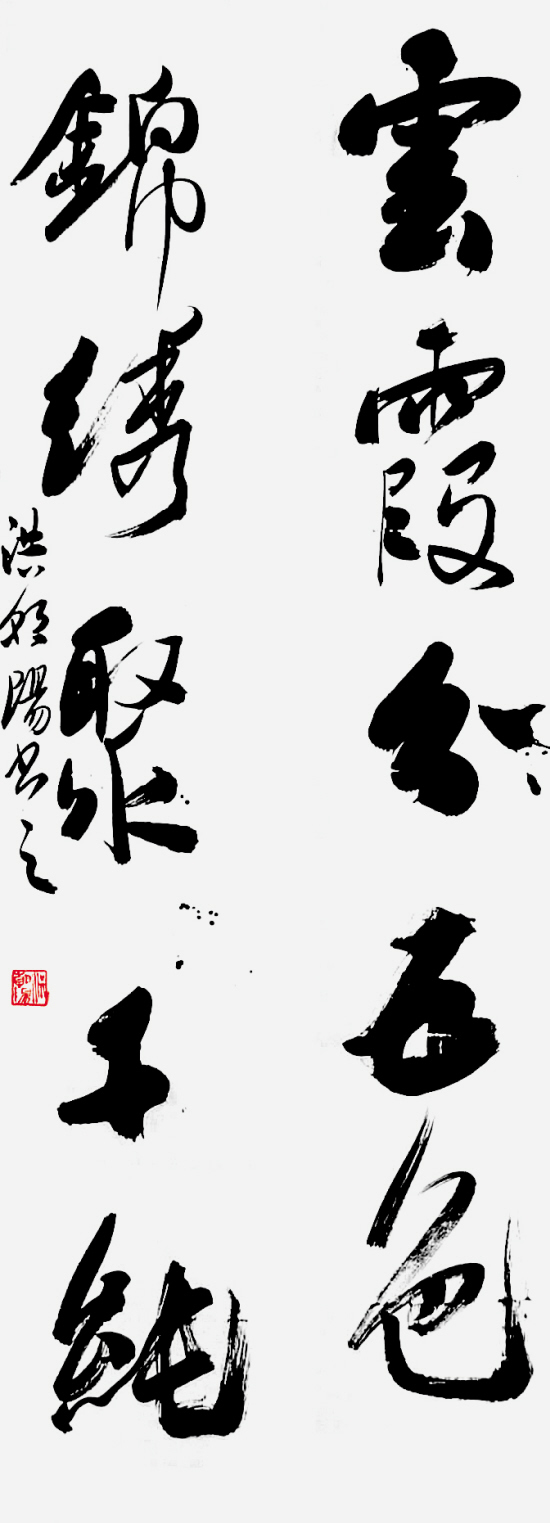 雲霞分五色
錦綉聚千純
洪朝陽书之